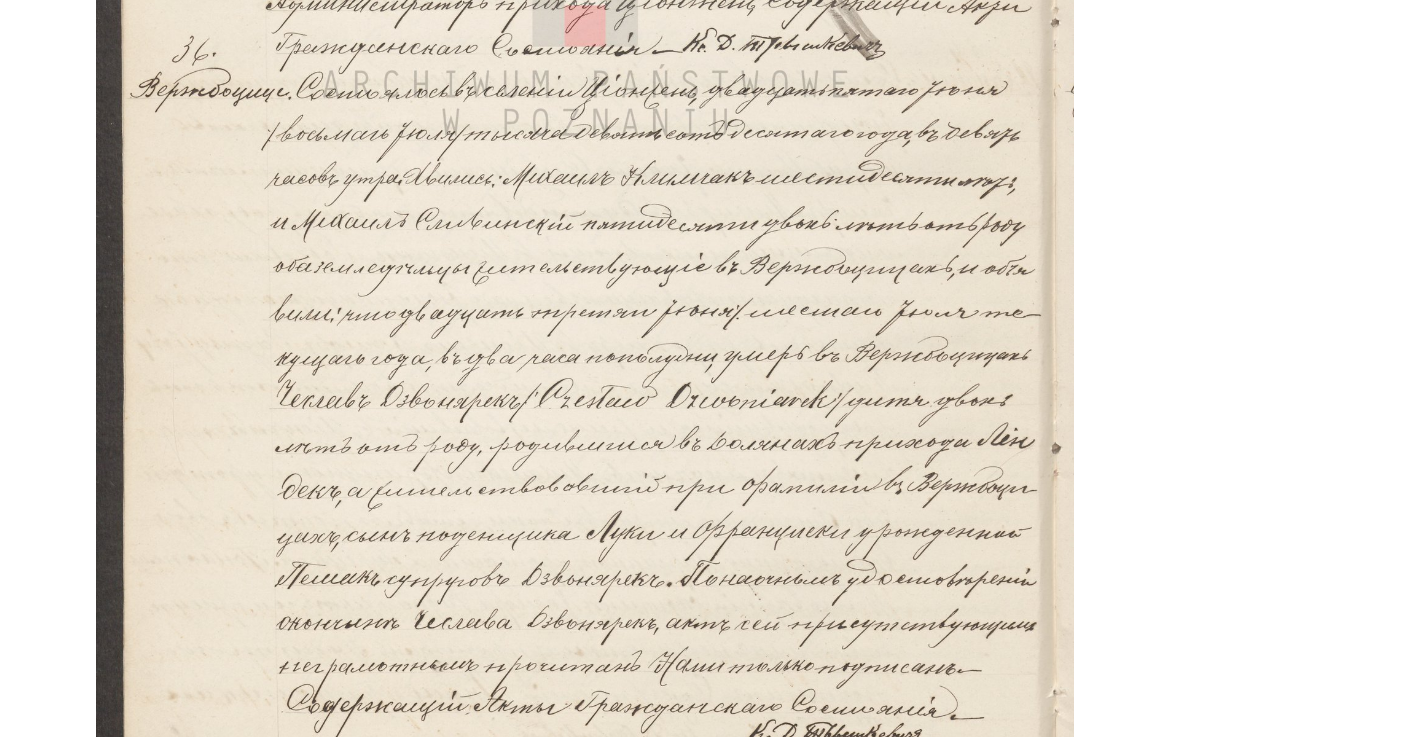 Администраторъ прихода Ціонжень, Содержащій Акты
Гражданскаго Состоянія. Кс. Д.
ARCHIWUM PAŃSTWOWE
W POZNANIU
36.
Вержбоцице. Состоялось въ селеніи Ціонжень, двадцать пятаго Іюня
/восьмаго Іюля/ тысяча девятьсотъ десятаго года, въ девять
часовъ утра. Явились: Михаилъ Климчакъ шестидесяти лѣтъ,
и Михаилъ Сливинскій пятидесяти двохъ лѣтъ отъ роду
оба земледѣльцы жительствующіе въ Вержбоцицахъ, и объя
вили; что двадцать третяго Іюня /шестаго Іюля те-
кущаго года, въ два часа пополудни, умеръ въ Вержбоцицахъ
Чеславъ Дзвонярекъ /Czesław Dzwoniarek/ дитя двохъ
лѣтъ отъ роду, родившійся въ Долянахъ прихода Лён
декъ, а жительствовавшій при фамиліи въ Вержбоци-
цахъ, сынъ поденщика Луки и Францишки урожденной
Пешакъ супруговъ Дзвонярекъ. По наочнымъ удостовѣреніи
окончины Чеслава Дзвонярекъ, актъ сей присутствующимъ
неграмотнымъ прочитанъ Нами только подписанъ.
Содержащій Акты Гражданскаго Состоянія.
Кс. Д.